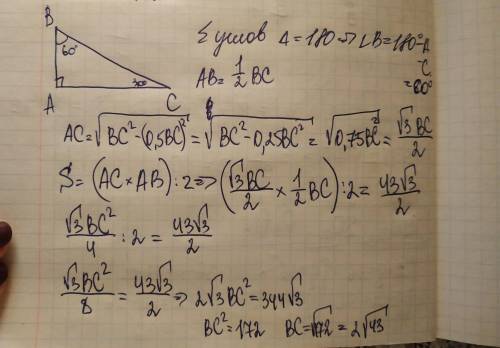 B
60°
A
30°
C
Σ углов Δ = 180 => ∠B = 180° - A - C = 60°
AB = 1/2 BC
AC = √(BC² - (0,5BC)²) = √(BC² - 0,25BC²) = √(0,75BC²) = √3 BC/2
S = (AC × AB) : 2 => (√3 BC/2 × 1/2 BC) : 2 = 43√3/2
√3 BC²/4 : 2 = 43√3/2
√3 BC²/8 = 43√3/2 => 2√3 BC² = 344√3
BC² = 172 BC = √172 = 2√43